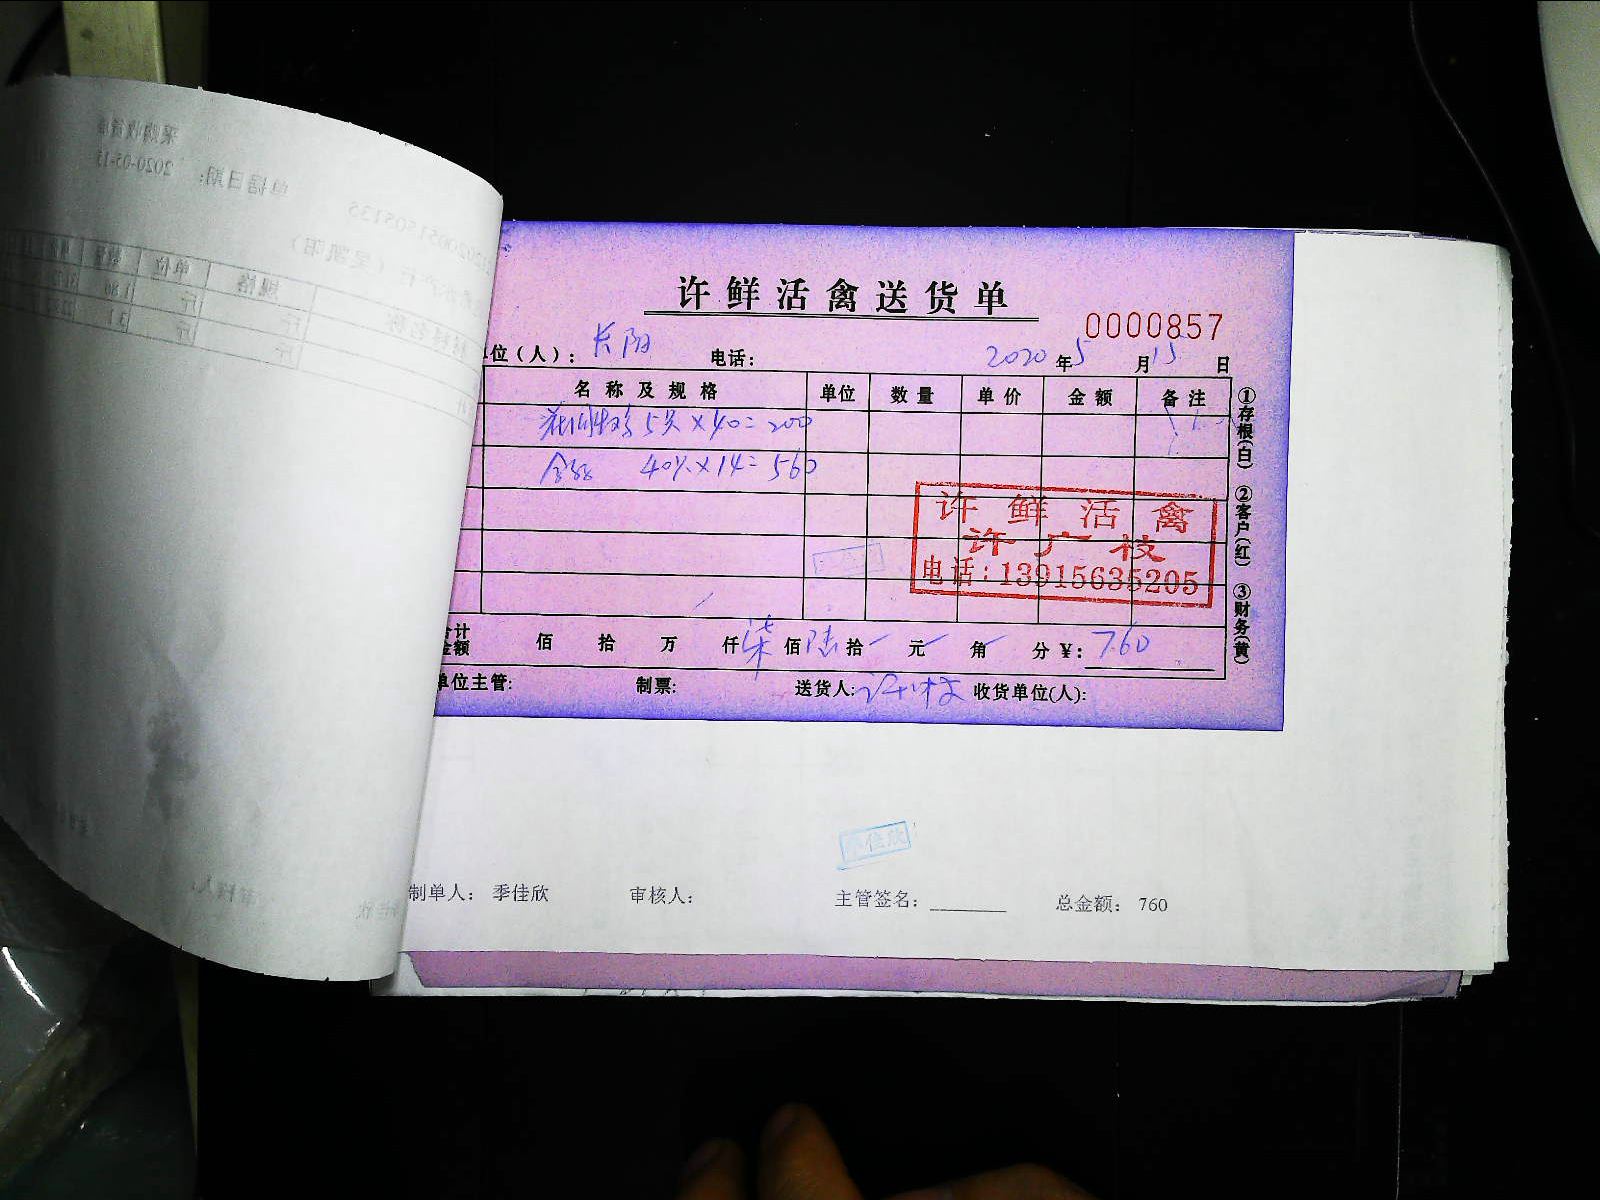 许鲜活禽送货单
0000857
位(人): 长阳 电话: 2020年5月15日
名称及规格 单位 数量 单价 金额 备注
5只×40=200
40%×14=560
许鲜活禽
许广枝
电话:13915635205
合计金额 佰 拾 万 仟 柒佰 陆拾 元 角 分 ¥: 760
单位主管: 制票: 送货人: 许枝 收货单位(人):
①存根(白) ②客户(红) ③财务(黄)
季佳欣
制单人: 季佳欣 审核人: 主管签名: 总金额: 760
采购收货
单据日期: 2020-05-15
材料名称 规格 单位 数量
斤
斤